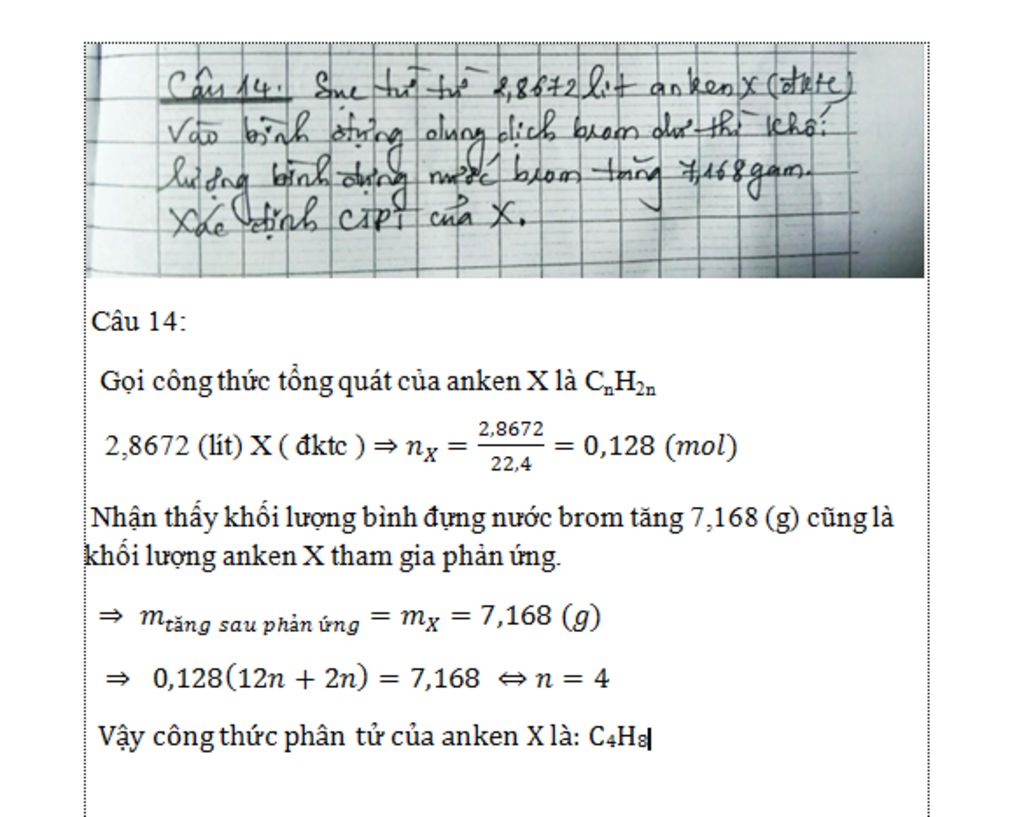 Câu 14. Sục từ từ 2,8672 lit anken X (đktc)
vào bình đựng dung dịch brom dư thì khối
lượng bình đựng nước brom tăng 7,168 gam.
Xác định CTPT của X.
Câu 14:
Gọi công thức tổng quát của anken X là CₙH₂ₙ
2,8672 (lít) X ( đktc ) ⇒ n_X = 2,8672/22,4 = 0,128 (mol)
Nhận thấy khối lượng bình đựng nước brom tăng 7,168 (g) cũng là
khối lượng anken X tham gia phản ứng.
⇒ m_tăng sau phản ứng = m_X = 7,168 (g)
⇒ 0,128(12n + 2n) = 7,168 ⇔ n = 4
Vậy công thức phân tử của anken X là: C₄H₈